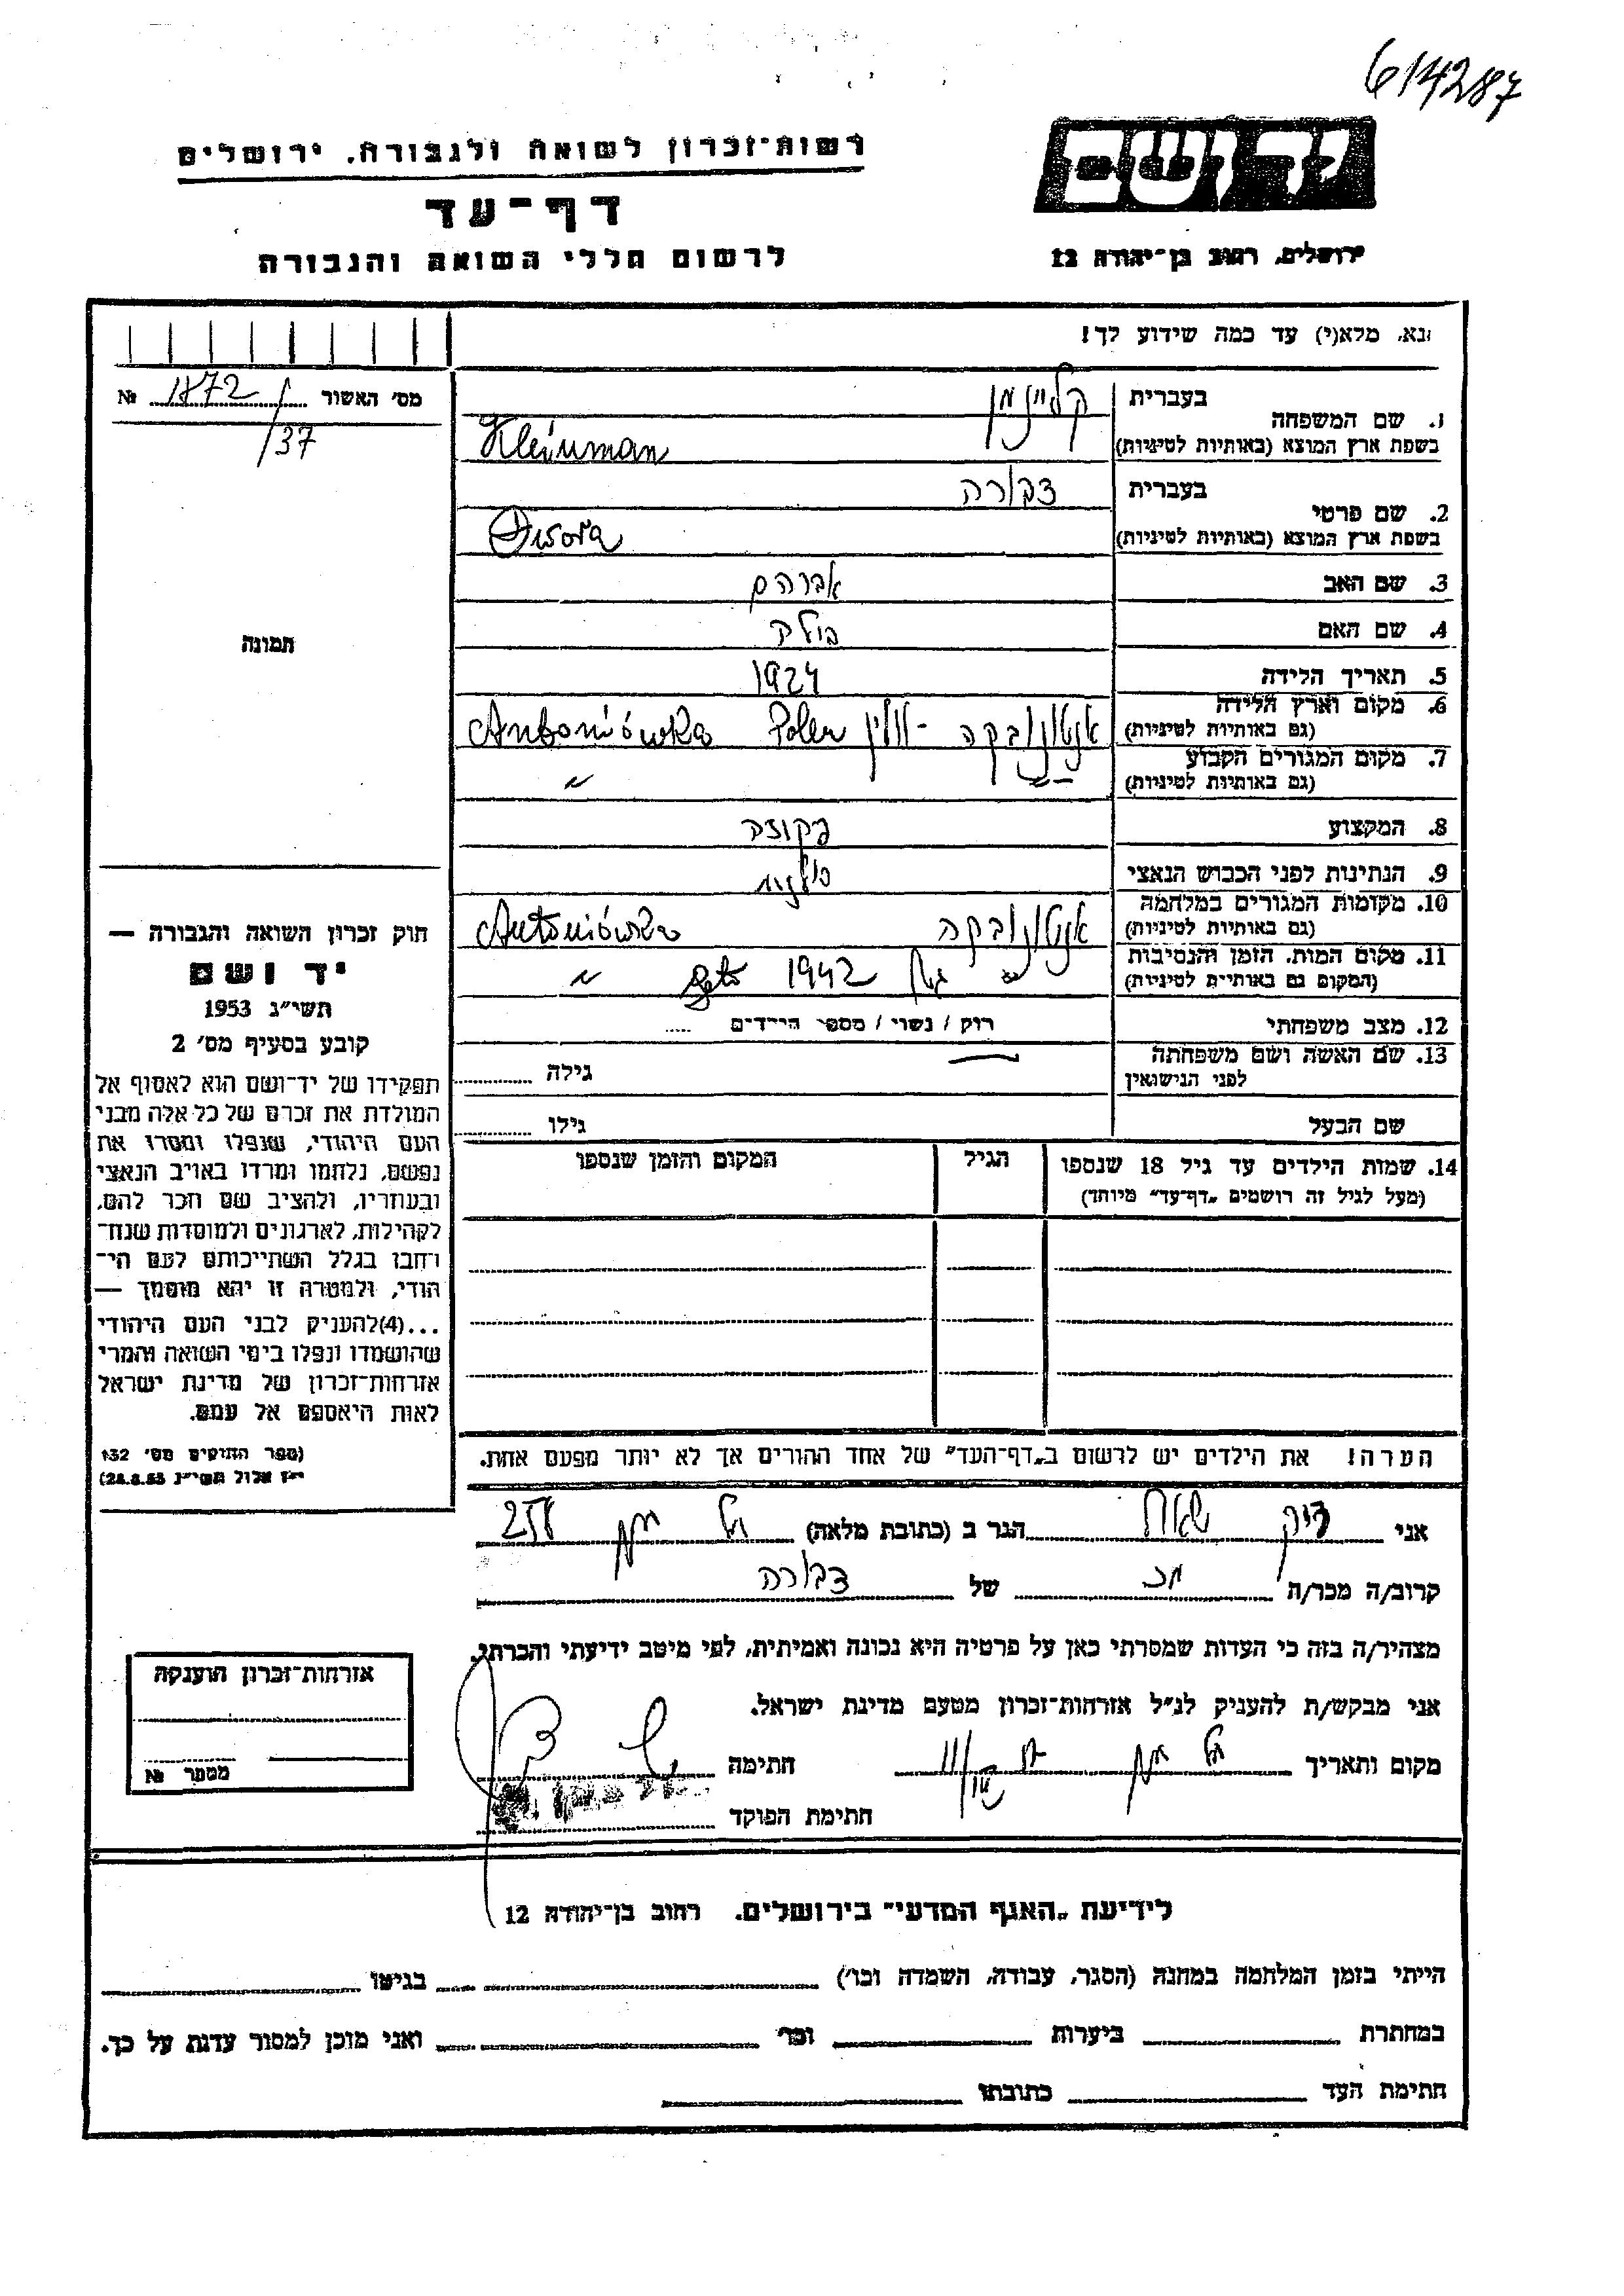 6142187
רשות-זכרון לשואה ולגבורה. ירושלים
יד ושם
דף-עד
לרשום חללי השואה והגבורה
ירושלים, רחוב בן-יהודה 12
נא, מלא(י) עד כמה שידוע לך!
מס' האשור 1872/ №
/37
בעברית קליינמן
1. שם המשפחה
בשפת ארץ המוצא (באותיות לטיניות) Kleinman
בעברית דבורה
2. שם פרטי
בשפת ארץ המוצא (באותיות לטיניות) Dwora
3. שם האב אברהם
4. שם האם
תמונה
5. תאריך הלידה 1924
6. מקום וארץ הלידה
(גם באותיות לטיניות) אנטונובקה - ווהלין Polen Antoniówka
7. מקום המגורים הקבוע
(גם באותיות לטיניות) -"- "
8. המקצוע
9. הנתינות לפני הכבוש הנאצי פולנית
10. מקומות המגורים במלחמה
(גם באותיות לטיניות) אנטונובקה Antoniówka
11. מקום המות, הזמן והנסיבות
(המקום גם באותיות לטיניות) " גטו 1942 geto "
12. מצב משפחתי רוק / נשוי / מספר הילדים .....
13. שם האשה ושם משפחתה
לפני הנישואין גילה
שם הבעל גילו
14. שמות הילדים עד גיל 18 שנספו הגיל המקום והזמן שנספו
(מעל לגיל זה רושמים "דף-עד" מיוחד)
חוק זכרון השואה והגבורה —
יד ושם
תשי"ג 1953
קובע בסעיף מס' 2
תפקידו של יד-ושם הוא לאסוף אל
המולדת את זכרם של כל אלה מבני
העם היהודי, שנפלו ומסרו את
נפשם, נלחמו ומרדו באויב הנאצי
ובעוזריו, ולהציב שם וזכר להם,
לקהילות, לארגונים ולמוסדות שנח-
רבו בגלל השתייכותם לעם הי-
הודי, ולמטרה זו יהא מוסמך —
...(4)להעניק לבני העם היהודי
שהושמדו ונפלו בימי השואה והמרי
אזרחות-זכרון של מדינת ישראל
לאות היאספם אל עמם.
(ספר החוקים מס' 132
י"ז אלול תשי"ג 28.8.53)
הערה! את הילדים יש לרשום ב"דף-העד" של אחד ההורים אך לא יותר מפעם אחת.
אני הגר ב (כתובת מלאה)
קרוב/ה מכר/ה של דבורה
מצהיר/ה בזה כי העדות שמסרתי כאן על פרטיה היא נכונה ואמיתית, לפי מיטב ידיעתי והכרתי.
אני מבקש/ת להעניק לנ"ל אזרחות-זכרון מטעם מדינת ישראל.
מקום ותאריך חתימה
חתימת הפוקד
אזרחות-זכרון הוענקה
מספר №
לידיעת "האגף המדעי" בירושלים. רחוב בן-יהודה 12
הייתי בזמן המלחמה במחנה (הסגר, עבודה, השמדה וכו') בגיטו
במחתרת ביערות וכו' ואני מוכן למסור עדות על כך.
חתימת העד כתובתו